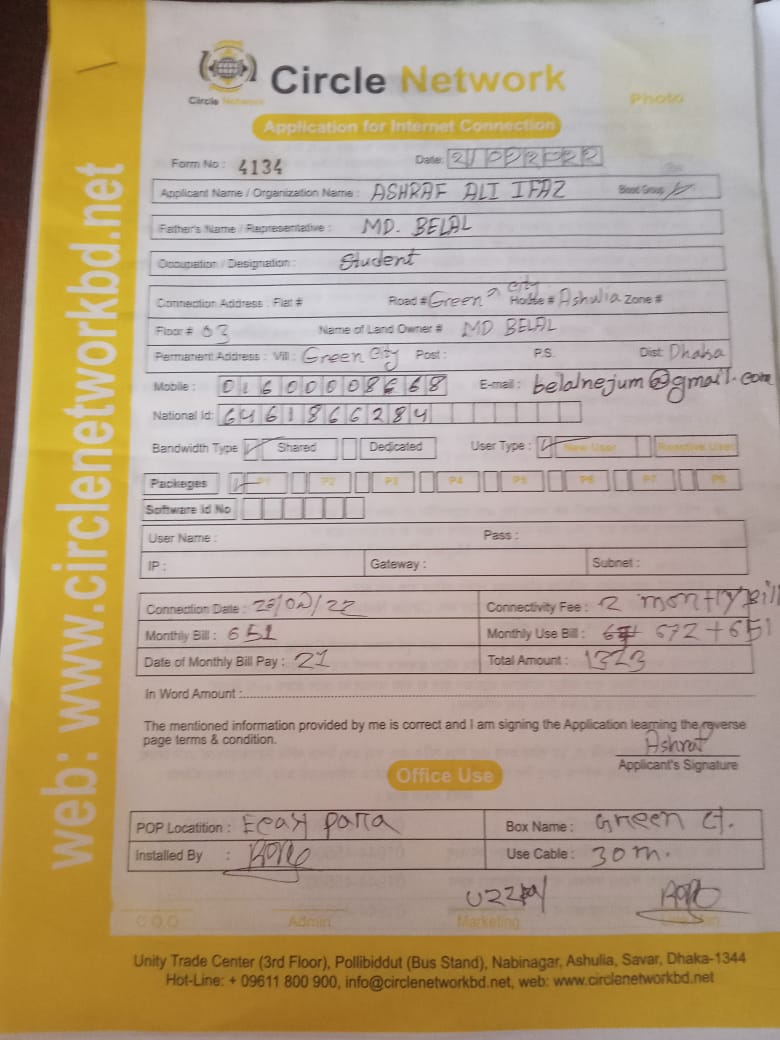 Circle Network
Circle Network
Photo
Application for Internet Connection
web: www.circlenetworkbd.net
Form No : 4134
Date: 21022022
Applicant Name / Organization Name : ASHRAF ALI IFAZ Blood Group
Father's Name / Representative : MD. BELAL
Occupation / Designation : Student
Connection Address : Flat # Road # Green City House # Ashulia Zone #
Floor # 03 Name of Land Owner # MD BELAL
Permanent Address : Vill : Green City Post : P.S. Dist: Dhaka
Mobile : 01600008668 E-mail : belalnejum@gmail.com
National Id: 6461866284
Bandwidth Type Shared Dedicated User Type : New User Reactive User
Packages P1 P2 P3 P4 P5 P6 P7 P8
Software Id No
User Name : Pass :
IP : Gateway : Subnet :
Connection Date : /02/22 Connectivity Fee : 2 montly Bill
Monthly Bill : 651 Monthly Use Bill : 672+651
Date of Monthly Bill Pay : 21 Total Amount : 1323
In Word Amount :
The mentioned information provided by me is correct and I am signing the Application learning the reverse
page terms & condition.
Ashraf
Applicant's Signature
Office Use
POP Locatition : Box Name : Green ct.
Installed By : Use Cable : 30 m.
C O O Admin Marketing
Unity Trade Center (3rd Floor), Pollibiddut (Bus Stand), Nabinagar, Ashulia, Savar, Dhaka-1344
Hot-Line: + 09611 800 900, info@circlenetworkbd.net, web: www.circlenetworkbd.net